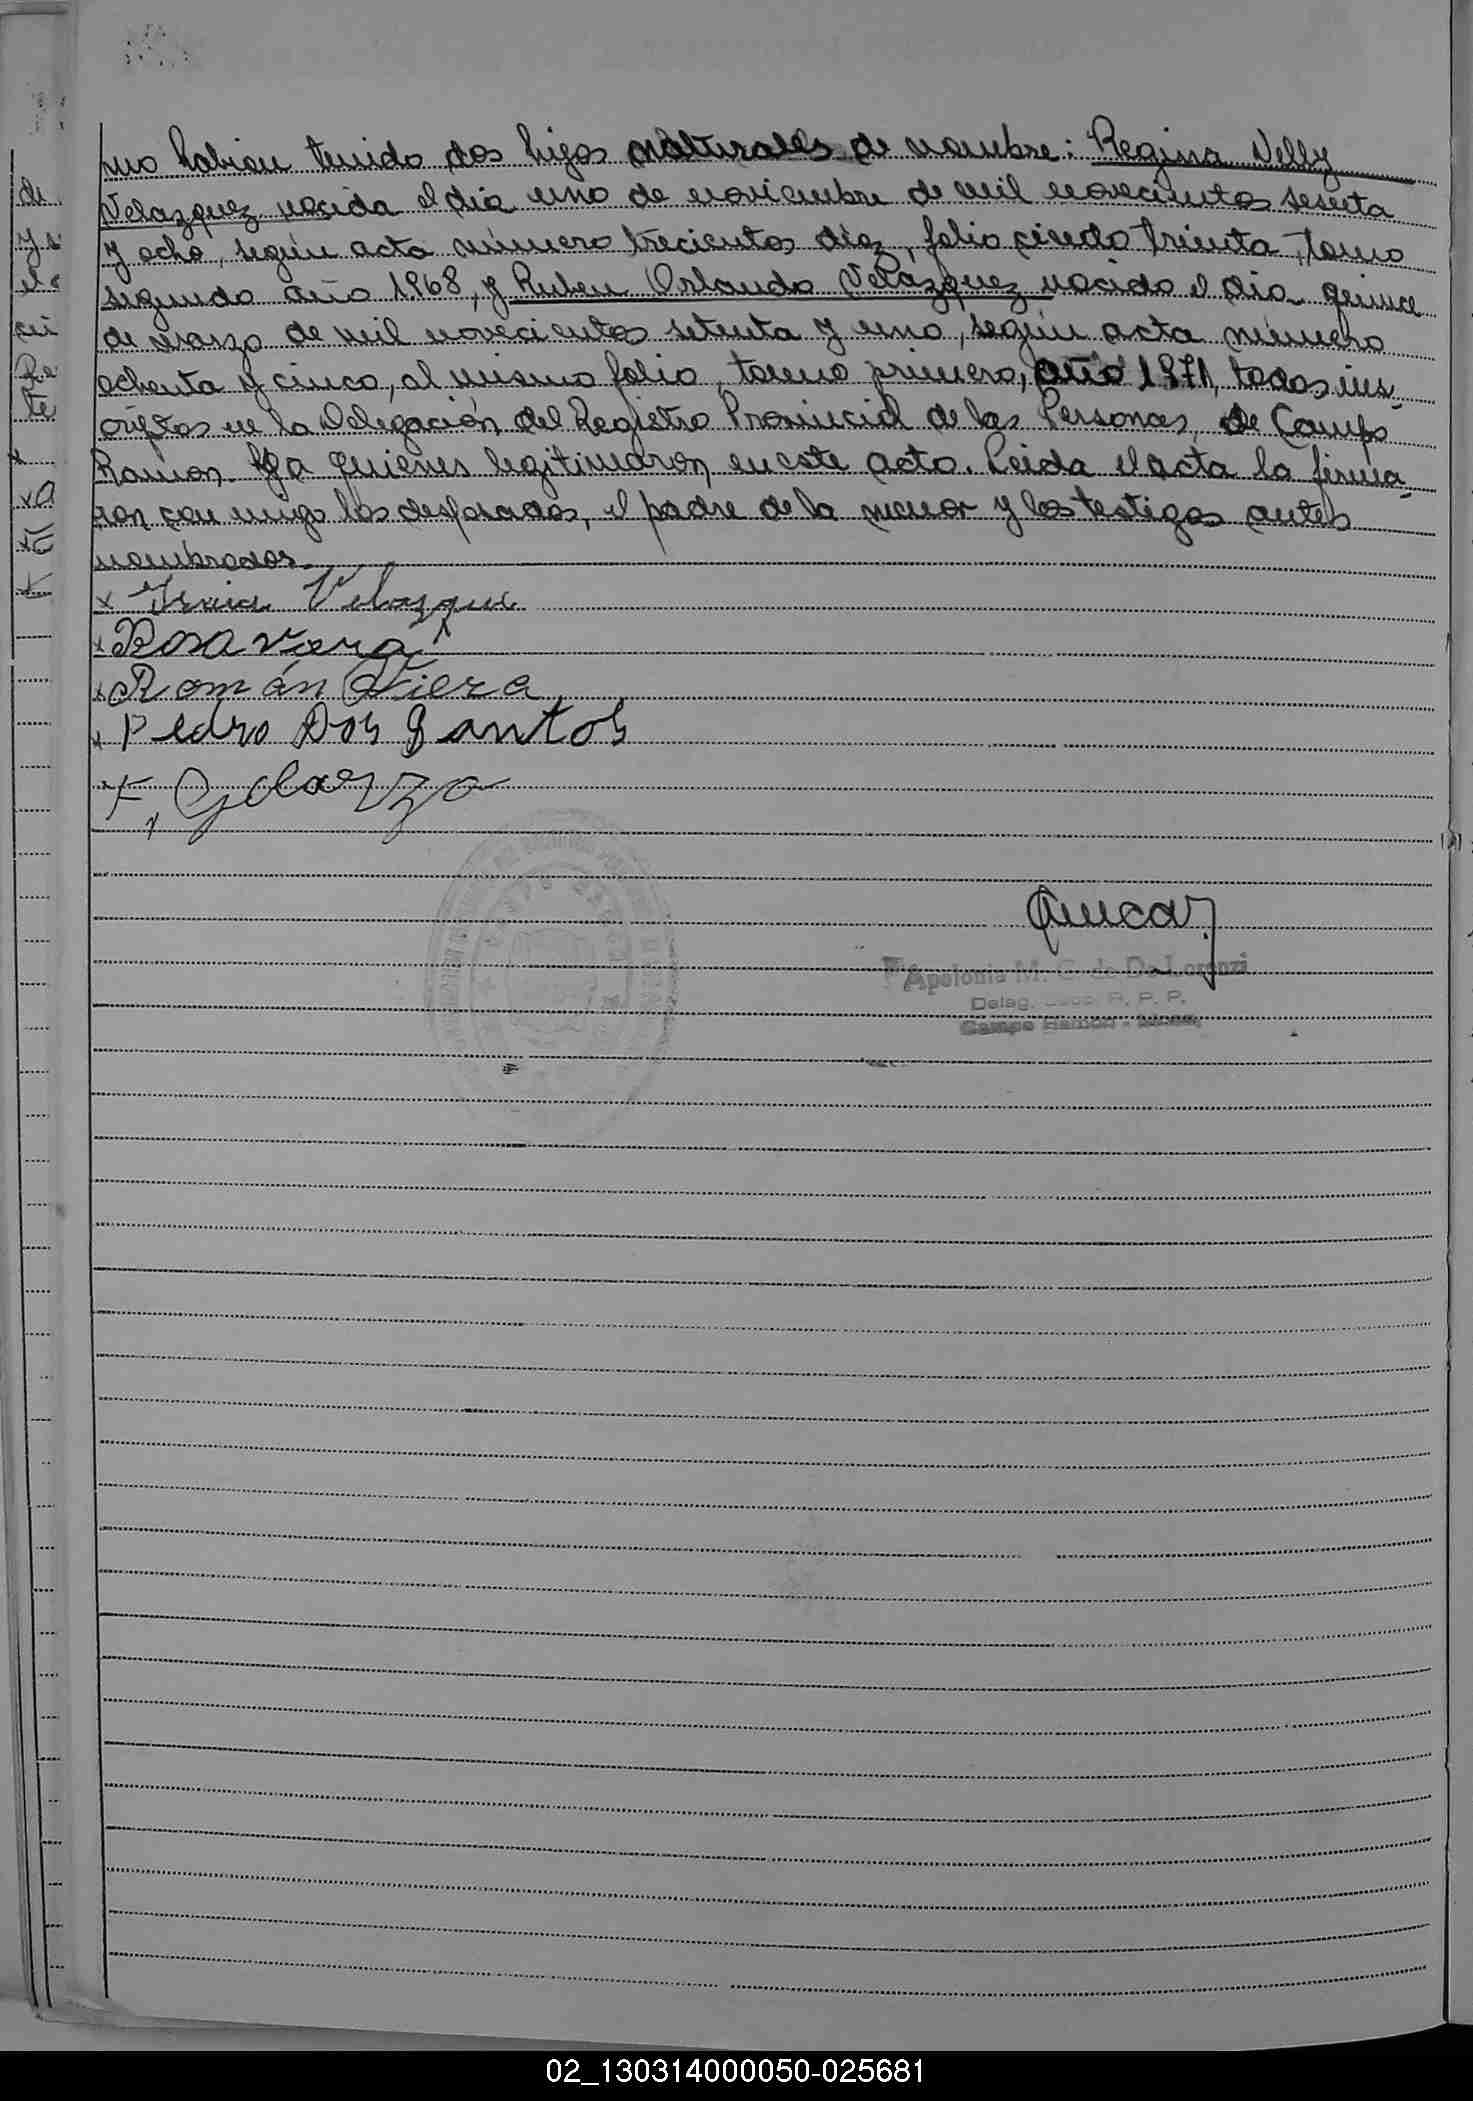 mo habian tenido dos hijos naturales de nombre: Regina Nelly
Velazquez nacida el dia uno de noviembre de mil novecientos sesenta
y ocho, según acta número trecientos diez, folio ciento treinta, tomo
segundo año 1968, y Ruben Orlando Velázquez nacido el dia quince
de marzo de mil novecientos setenta y uno, según acta número
ochenta y cinco, al mismo folio, tomo primero, año 1971, todos ins
criptos en la Delegación del Registro Provincial de las Personas, de Campo
Ramon. a quienes legitimaron en este acto. Leida el acta la firma
ron conmigo los desposados, el padre de la menor y los testigos antes
nombrados.
x Velazquez
x Rosa Viera
x Román Viera
x Pedro Dos Santos
Apolonia M. C. de De Lorenzi
Deleg. R. P. P.
Campo Ramon - Mnes.
de
y s
te
02_130314000050-025681